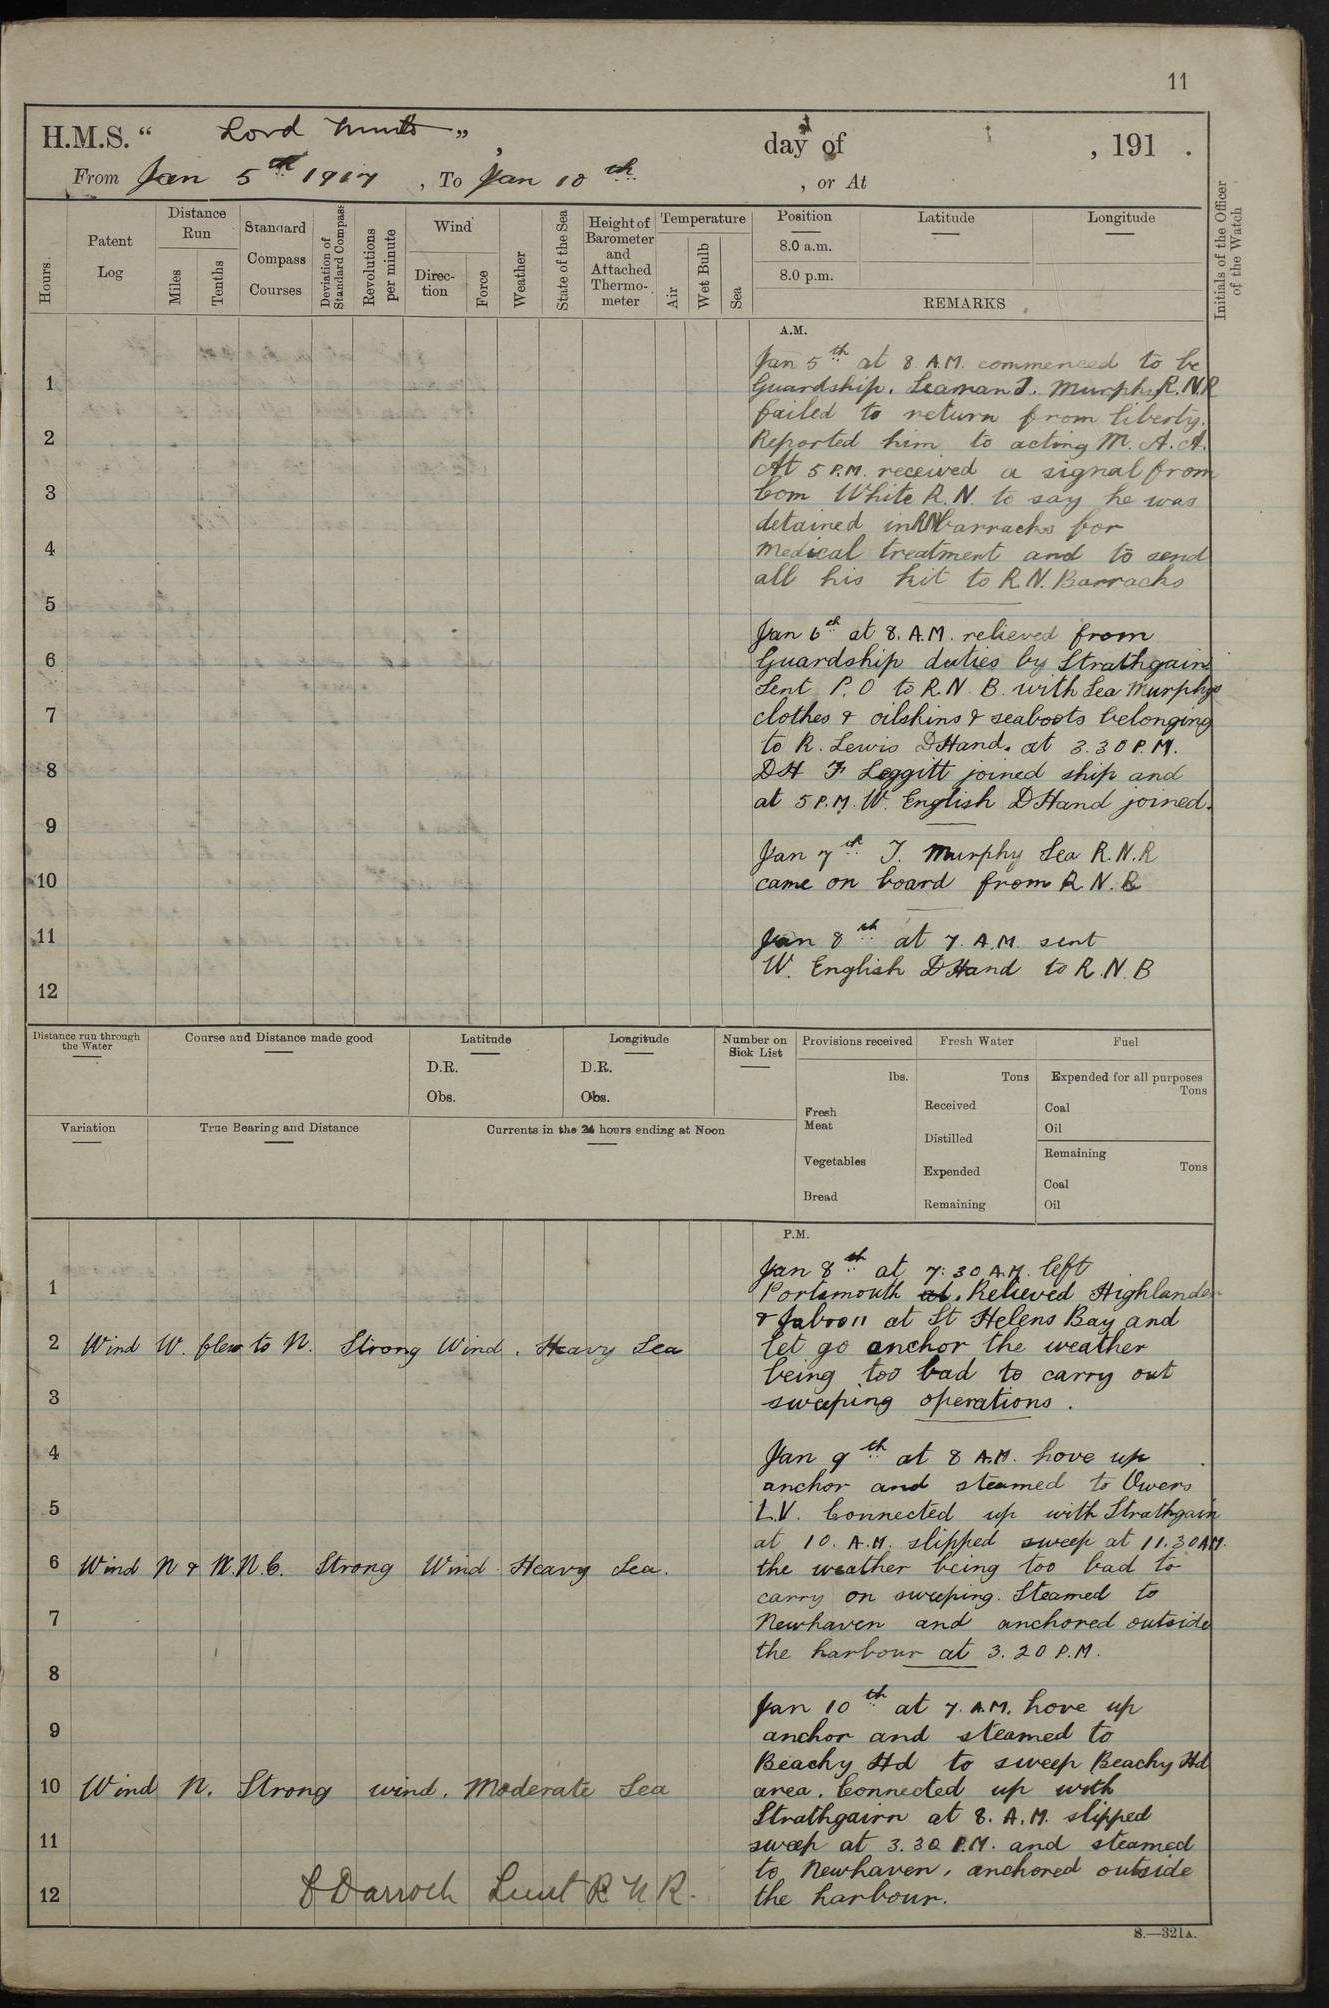 11
H.M.S. “ Lord Minto ” , day of , 191 .
From Jan 5th 1917 , To Jan 10th , or At
Hours.
Patent Log
Distance Run
Miles
Tenths
Standard Compass Courses
Deviation of Standard Compass
Revolutions per minute
Wind
Direc-tion
Force
Weather
State of the Sea
Height of Barometer and Attached Thermo-meter
Temperature
Air
Wet Bulb
Sea
Position
Latitude
Longitude
8.0 a.m.
8.0 p.m.
REMARKS
Initials of the Officer of the Watch
A.M.
Jan 5th at 8 A.M. commenced to be
1
Guardship. Seaman J. Murphy R.N.R
failed to return from liberty.
2
Reported him to acting M.A.A.
At 5 P.M. received a signal from
3
Com White R.N. to say he was
detained in RN barracks for
4
medical treatment and to send
all his kit to R.N. Barracks
5
Jan 6th at 8. A.M. relieved from
6
Guardship duties by Strathgairn
Sent P.O to R.N.B. with Sea Murphys
7
clothes & oilskins & seaboots belonging
to R. Lewis D Hand. at 3.30 P.M.
8
DH F Leggitt joined ship and
at 5 P.M. W. English D Hand joined.
9
Jan 7th J. Murphy Sea R.N.R
10
came on board from R.N.B
11
Jan 8th at 7. A.M. sent
W. English D Hand to R.N.B
12
Distance run through the Water
Course and Distance made good
Latitude
D.R.
Obs.
Longitude
D.R.
Obs.
Number on Sick List
Provisions received
lbs.
Fresh Meat
Vegetables
Bread
Fresh Water
Tons
Received
Distilled
Expended
Remaining
Fuel
Expended for all purposes
Tons
Coal
Oil
Remaining
Tons
Coal
Oil
Variation
True Bearing and Distance
Currents in the 24 hours ending at Noon
P.M.
Jan 8th at 7.30 A.M. left
1
Portsmouth at. Relieved Highlander
& at St Helens Bay and
2 Wind W. flew to N. Strong Wind. Heavy Sea
let go anchor the weather
being too bad to carry out
3
sweeping operations.
4
Jan 9th at 8 A.M. hove up
anchor and steamed to Owers
5
L.V. Connected up with Strathgairn
at 10. A.M. slipped sweep at 11.30 AM.
6 Wind N & N.N.E. Strong Wind Heavy Sea.
the weather being too bad to
carry on sweeping. Steamed to
7
Newhaven and anchored outside
the harbour at 3.20 P.M.
8
Jan 10th at 7. A.M. hove up
9
anchor and steamed to
Beachy Hd to sweep Beachy Hd
10 Wind N. Strong wind. Moderate Sea
area. Connected up with
Strathgairn at 8. A.M. slipped
11
sweep at 3.30 P.M. and steamed
to Newhaven, anchored outside
12
the harbour.
D Darroch Lieut R N R.
S.—321A.